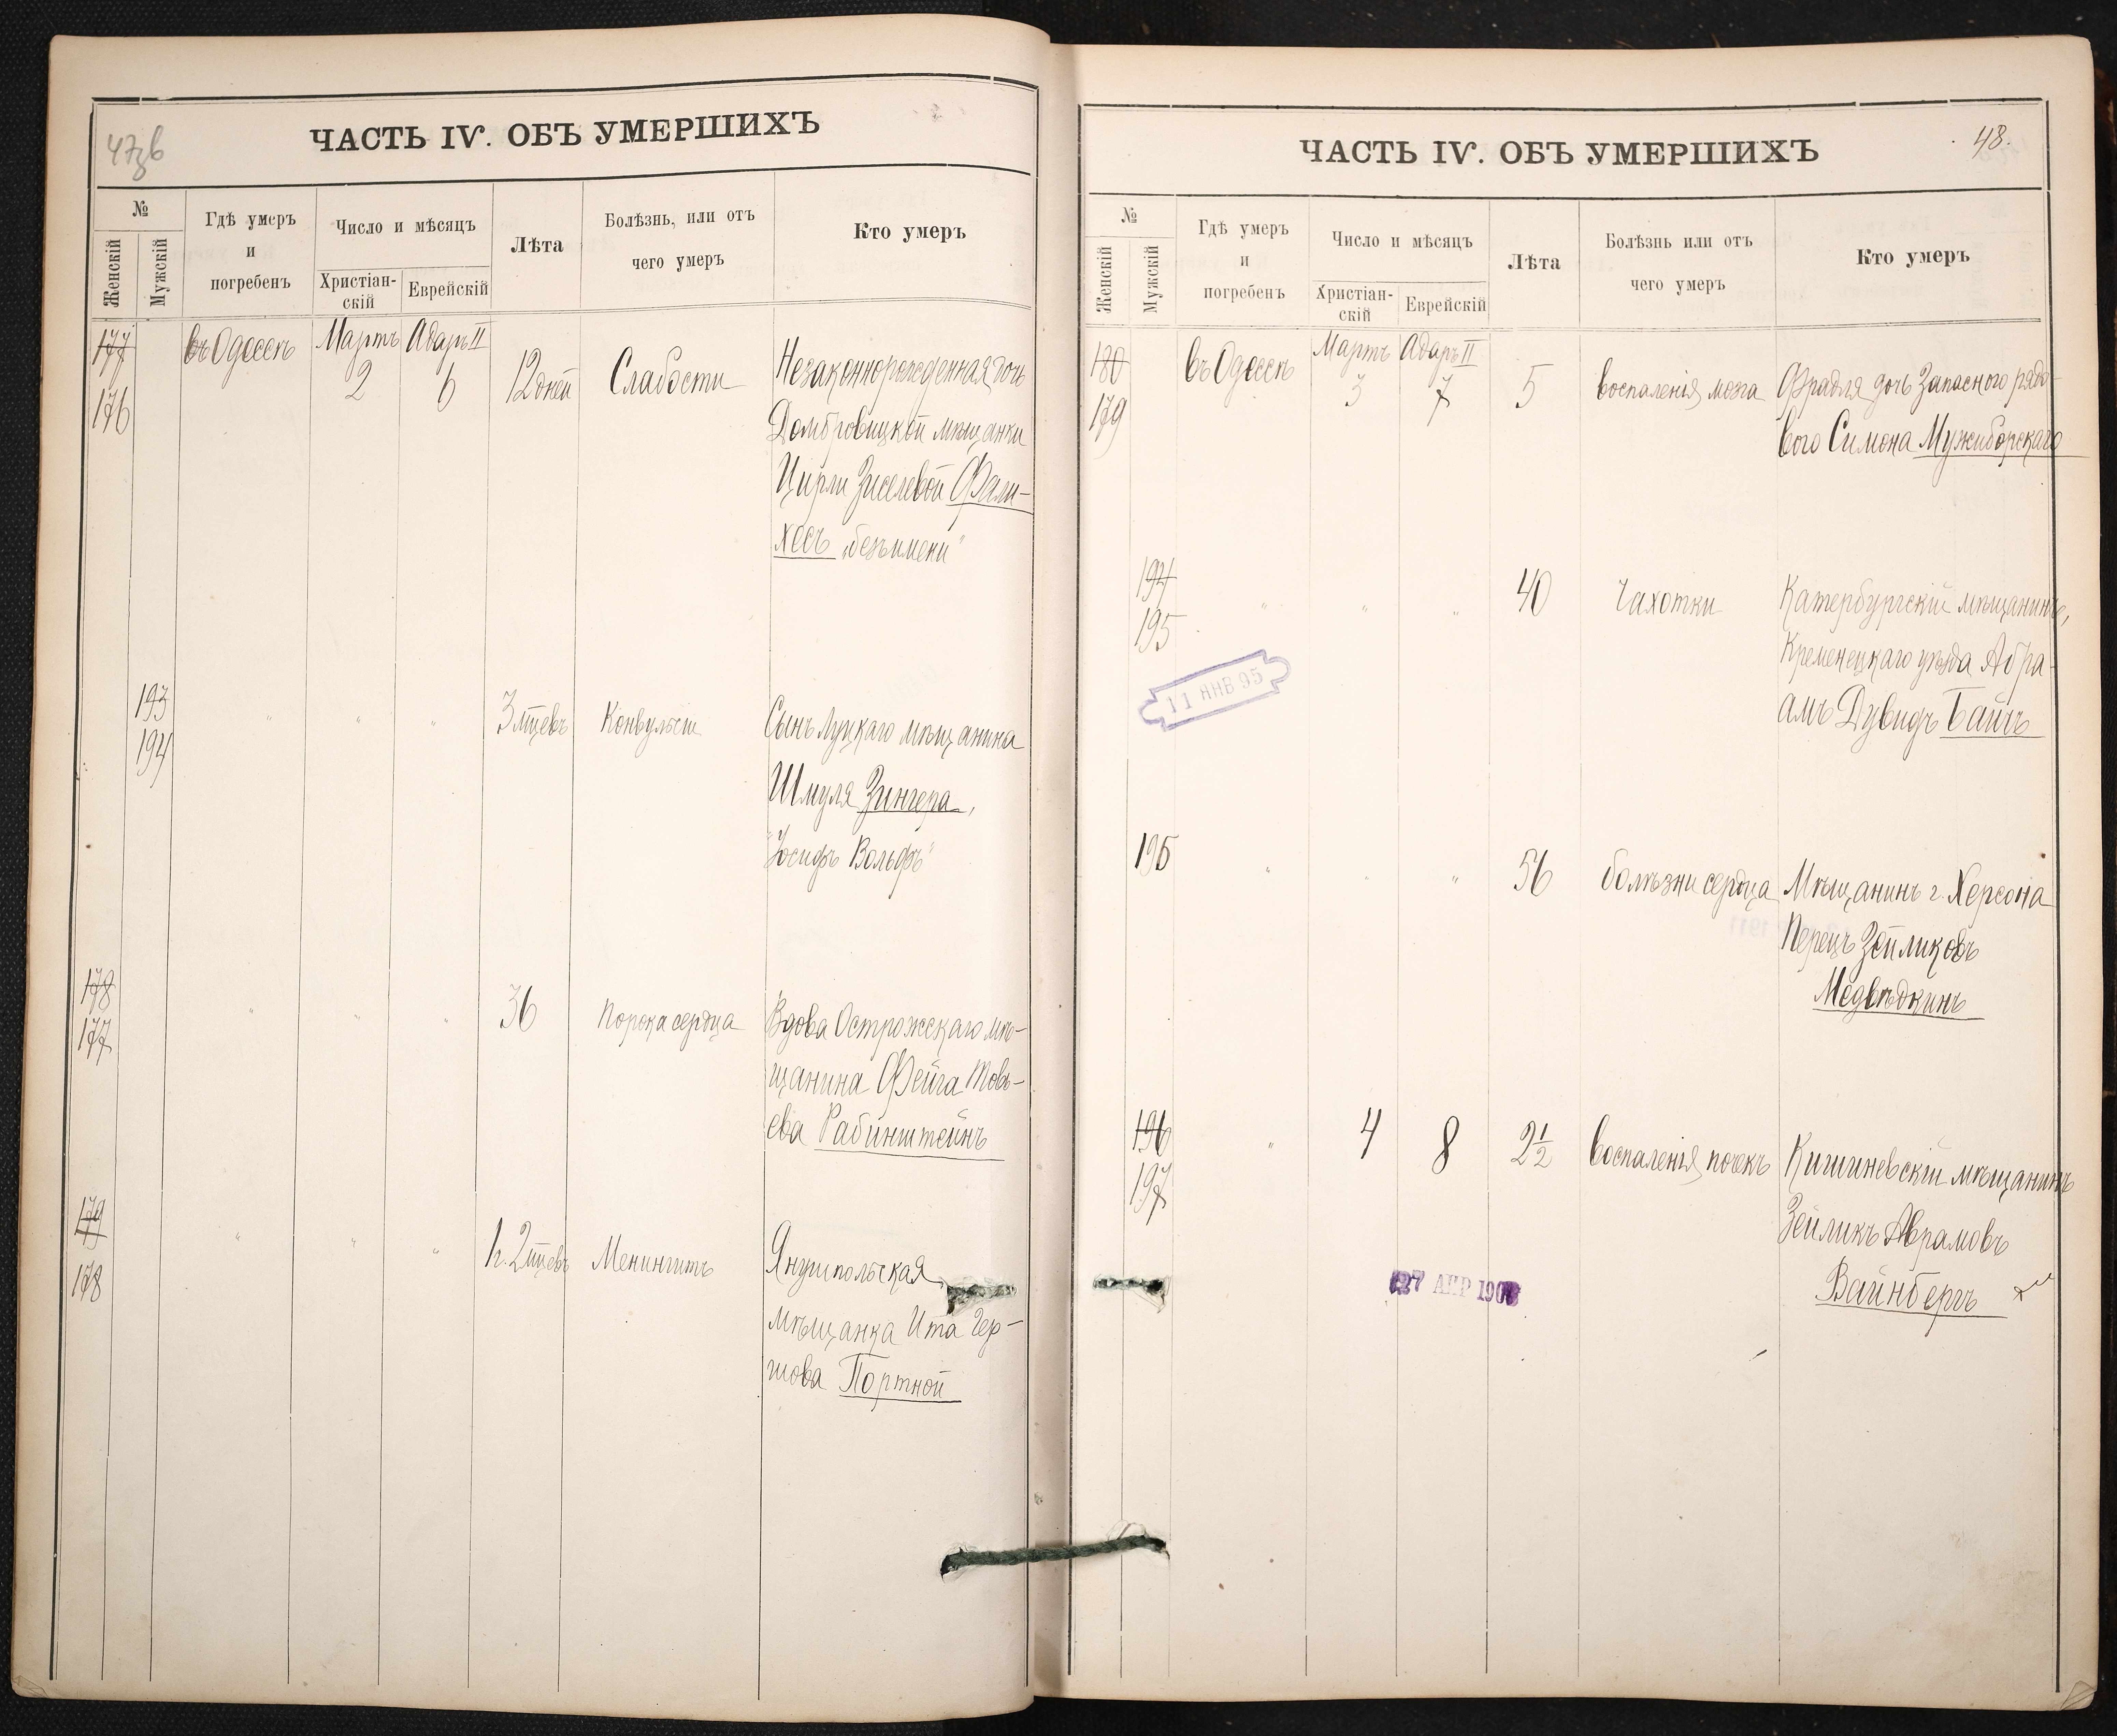 47зв
ЧАСТЬ IV. ОБЪ УМЕРШИХЪ
№
Женскій
Мужскій
Гдѣ умеръ
и
погребенъ
Число и мѣсяцъ
Христіан-
скій
Еврейскій
Лѣта
Болѣзнь, или отъ
чего умеръ
Кто умеръ
177
176
въ Одессѣ
Мартъ
2
Адаръ II
6
12 дней
Слабости
Незаконнорожденная дочь
Домбровицкой мѣщанки
Цирли Зиселевой Фали-
хесъ „безъ имени"
193
194
" " "
3 мцевъ
Конвульсіи
Сынъ Луцкаго мѣщанина
Шмуля Зингера,
"Іосифъ Вольфъ"
178
177
" " "
36
Порока сердца
Вдова Острожскаго мѣ-
щанина Фейга Товь-
ева Рабинштейнъ
179
178
" " "
1 г. 2 мцевъ
Менингитъ
Янушпольская
мѣщанка Ита Гер-
шова Портной
48.
ЧАСТЬ IV. ОБЪ УМЕРШИХЪ
№
Женскій
Мужскій
Гдѣ умеръ
и
погребенъ
Число и мѣсяцъ
Христіан-
скій
Еврейскій
Лѣта
Болѣзнь или отъ
чего умеръ
Кто умеръ
180
179
въ Одессѣ
Мартъ
3
Адаръ II
7
5
воспаленія мозга
Фрадля дочь Запаснаго рядо-
вого Симона Мужиборскаго
194
195
" " "
40
Чахотки
Катербургскій мѣщанинъ,
Кременецкаго уѣзда Абра-
амъ Дувидъ Байчъ
11 ЯНВ 95
196
" " "
56
болѣзни сердца
Мѣщанинъ г. Херсона
Перецъ Зейликовъ
Медвѣдкинъ
196
197
"
4
8
2½
воспаленія почекъ
Кишиневскій мѣщанинъ
Зейликъ Аврамовъ
Вайнбергъ
27 АПР